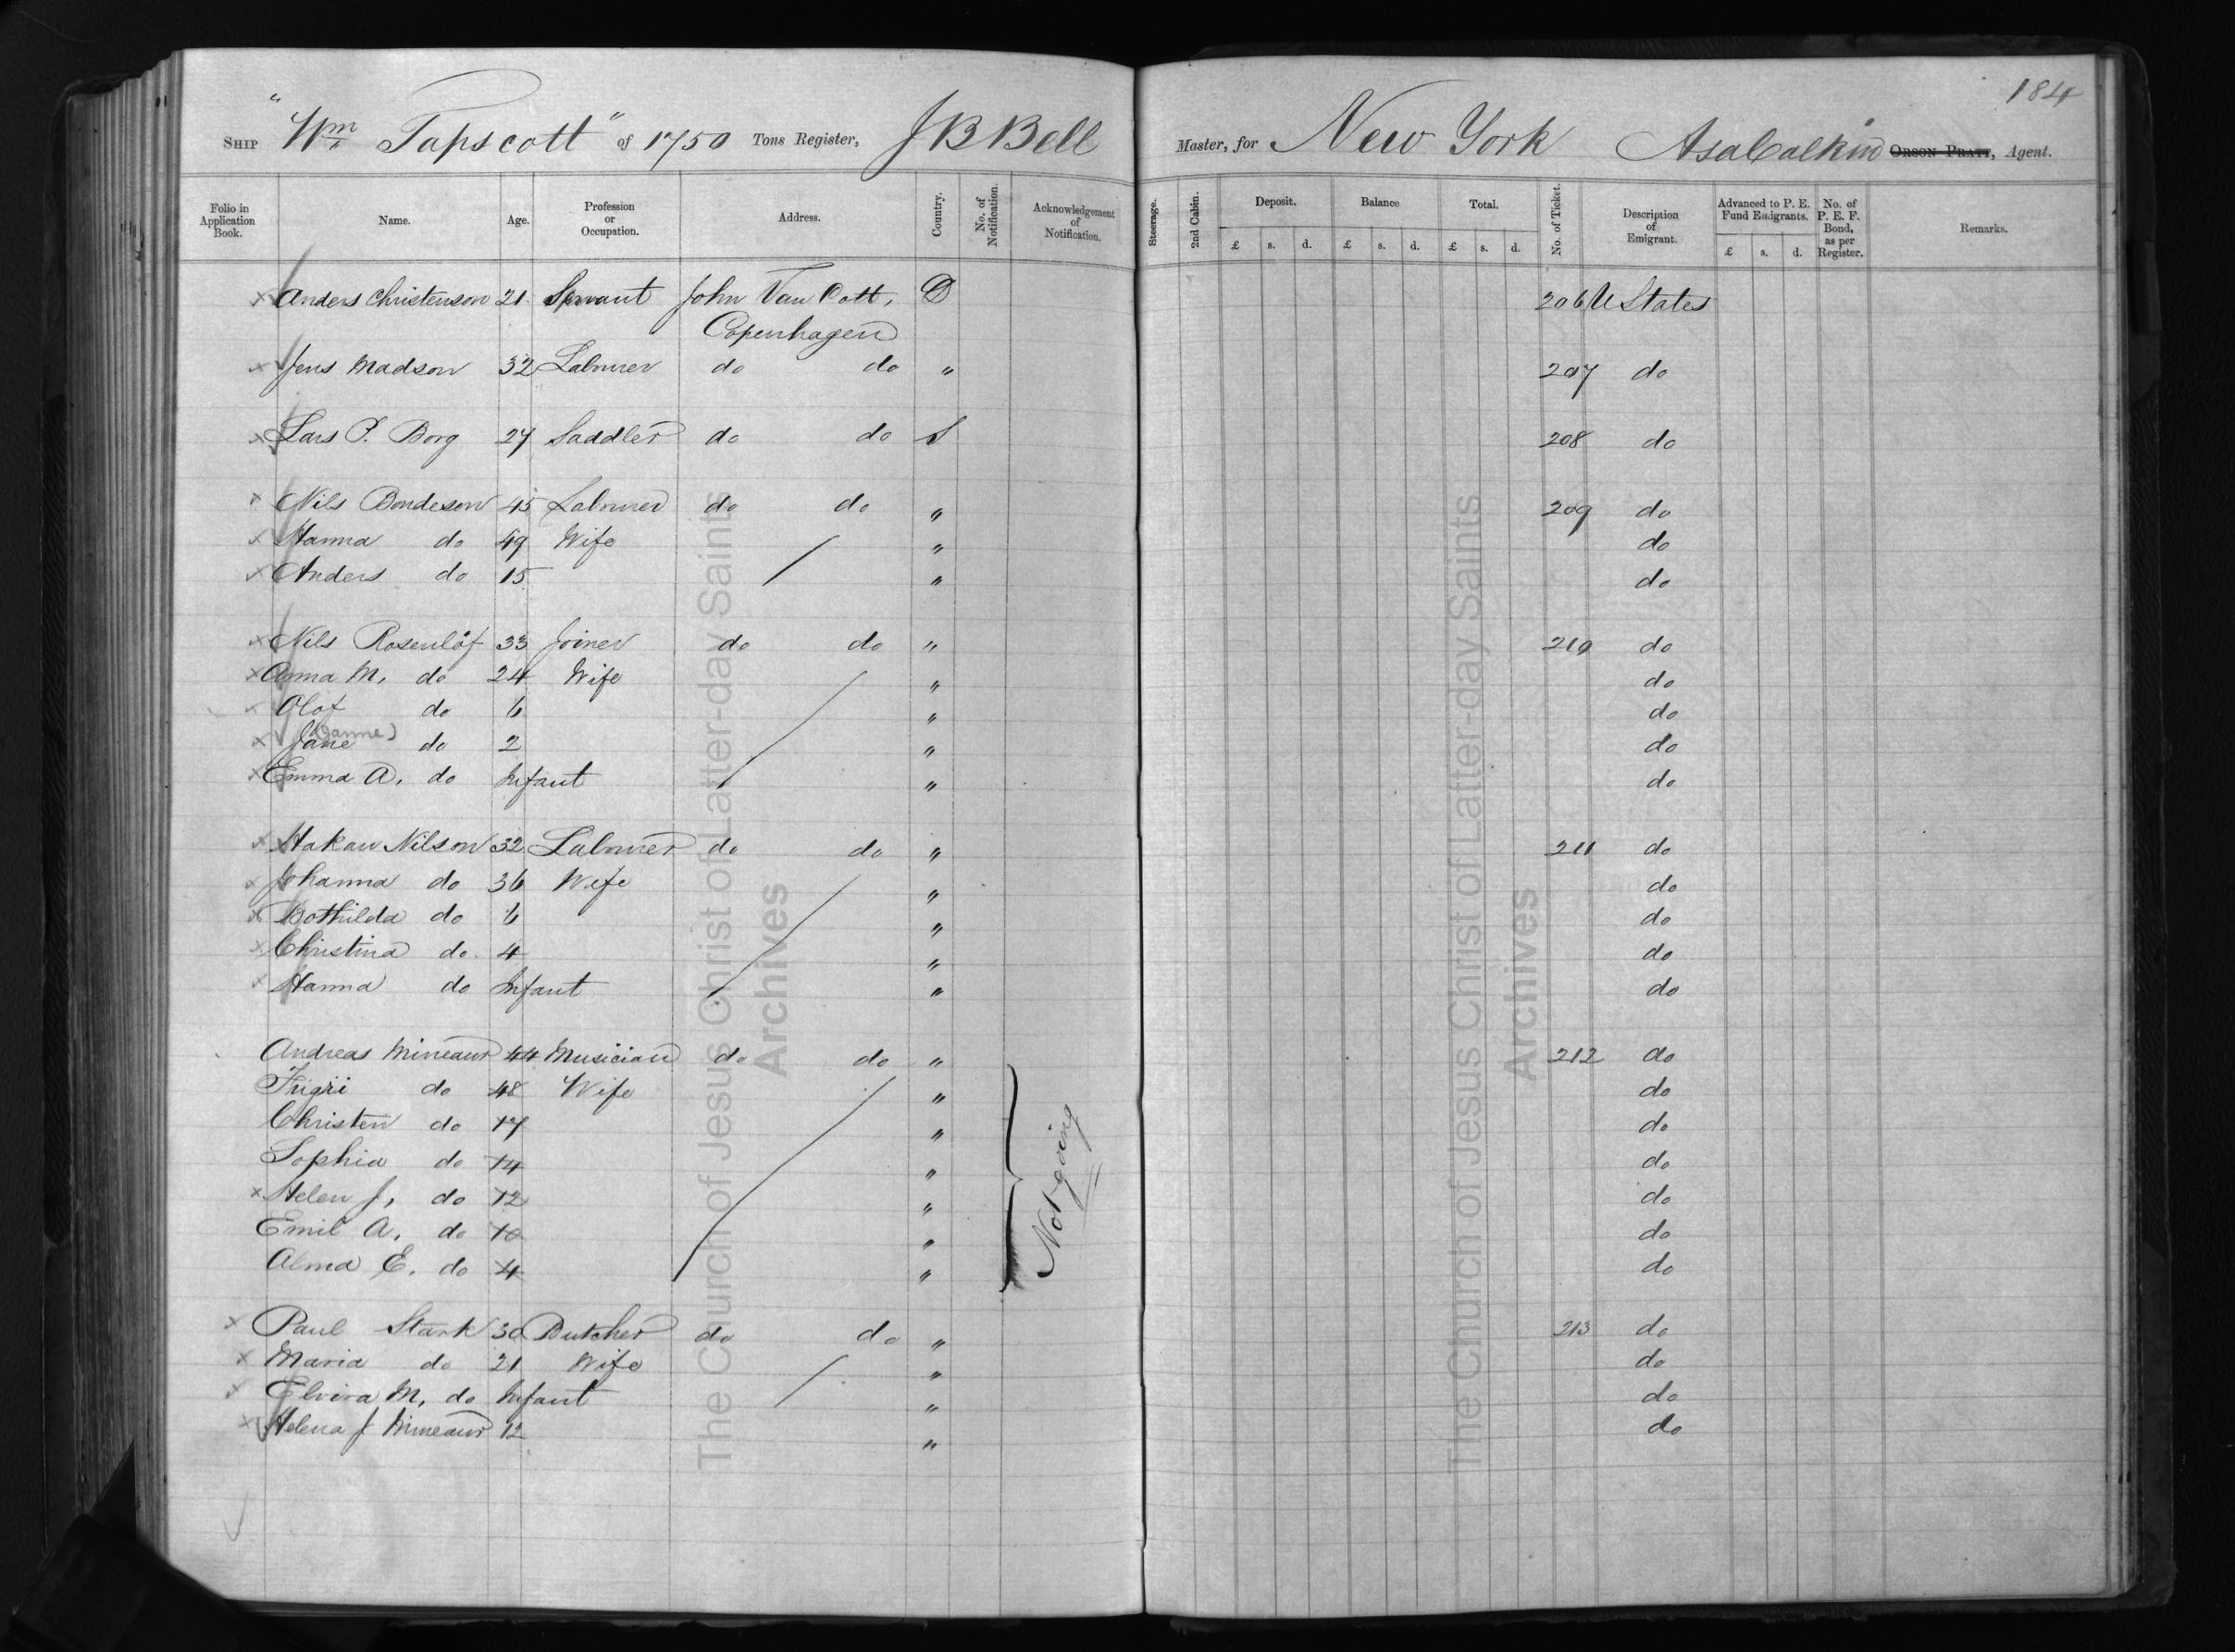 184
SHIP "Wm Tapscott" of 1750 Tons Register, J B Bell Master, for New York Asa Calkin ORSON PRATT, Agent.
Folio in Application Book. Name. Age. Profession or Occupation. Address. Country. No. of Notification. Acknowledgement of Notification. Steerage. 2nd Cabin. Deposit. Balance Total. No. of Ticket. Description of Emigrant. Advanced to P. E. Fund Emigrants. No. of P. E. F. Bond, as per Register. Remarks.
£ s. d. £ s. d. £ s. d. £ s. d.
x Anders Christenson 21 Servant John Van Cott, D 206 U States
Copenhagen
x Jens Madson 32 Labourer do do " 207 do
x Lars P. Borg 27 Saddler do do S 208 do
x Nils Bondeson 45 Labourer do do " 209 do
x Hanna do 49 Wife " do
x Anders do 15 " do
x Nils Rosenlöf 33 Joiner do do " 210 do
x Anna M. do 24 Wife " do
x Olof do 6 " do
(Janne)
x Jane do 2 " do
x Emma A. do Infant " do
x Hakan Nilson 32 Labourer do do " 211 do
x Johanna do 36 Wife " do
x Bothilda do 6 " do
x Christina do 4 " do
x Hanna do Infant " do
Andreas Mineaur 44 Musician do do " 212 do
do 48 Wife " do
Christen do 17 " do
Sophia do 14 " do
x Helen J, do 12 " do
Emil A, do 10 " do
Alma E. do 4 " do
Not going
x Paul Stark 30 Butcher do do " 213 do
x Maria do 21 Wife " do
x Elvira M, do Infant " do
x Helena J Mineaur 12 " do
The Church of Jesus Christ of Latter-day Saints
Archives
The Church of Jesus Christ of Latter-day Saints
Archives